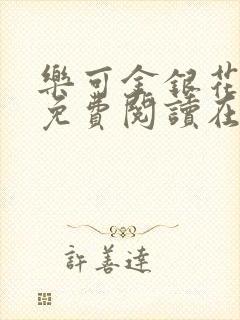 樂可金銀花
免費閱讀在
許善達